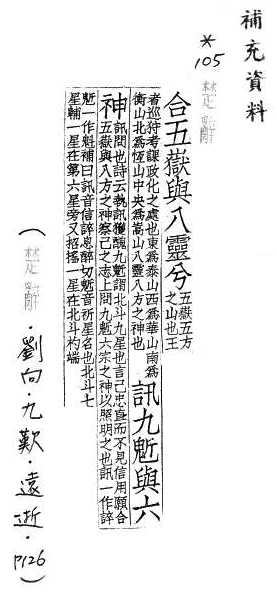 補充資料
*105 楚辭
合五嶽與八靈兮
五嶽五方
之山也王
者巡狩考課政化之處也東為泰山西為華山南為
衡山北為恆山中央為嵩山八靈八方之神也
訊九鬿與六
神
訊問也詩云執訊獲醜九鬿謂北斗九星也言己忠直而不見信用願合
五嶽與八方之神察己之志上問九鬿六宗之神以照明之也訊一作誶
鬿一作魁補曰訊音信誶息醉切鬿音所星名也北斗七
星輔一星在第六星旁又招搖一星在北斗杓端
(楚辭．劉向．九歎．遠逝．P126)